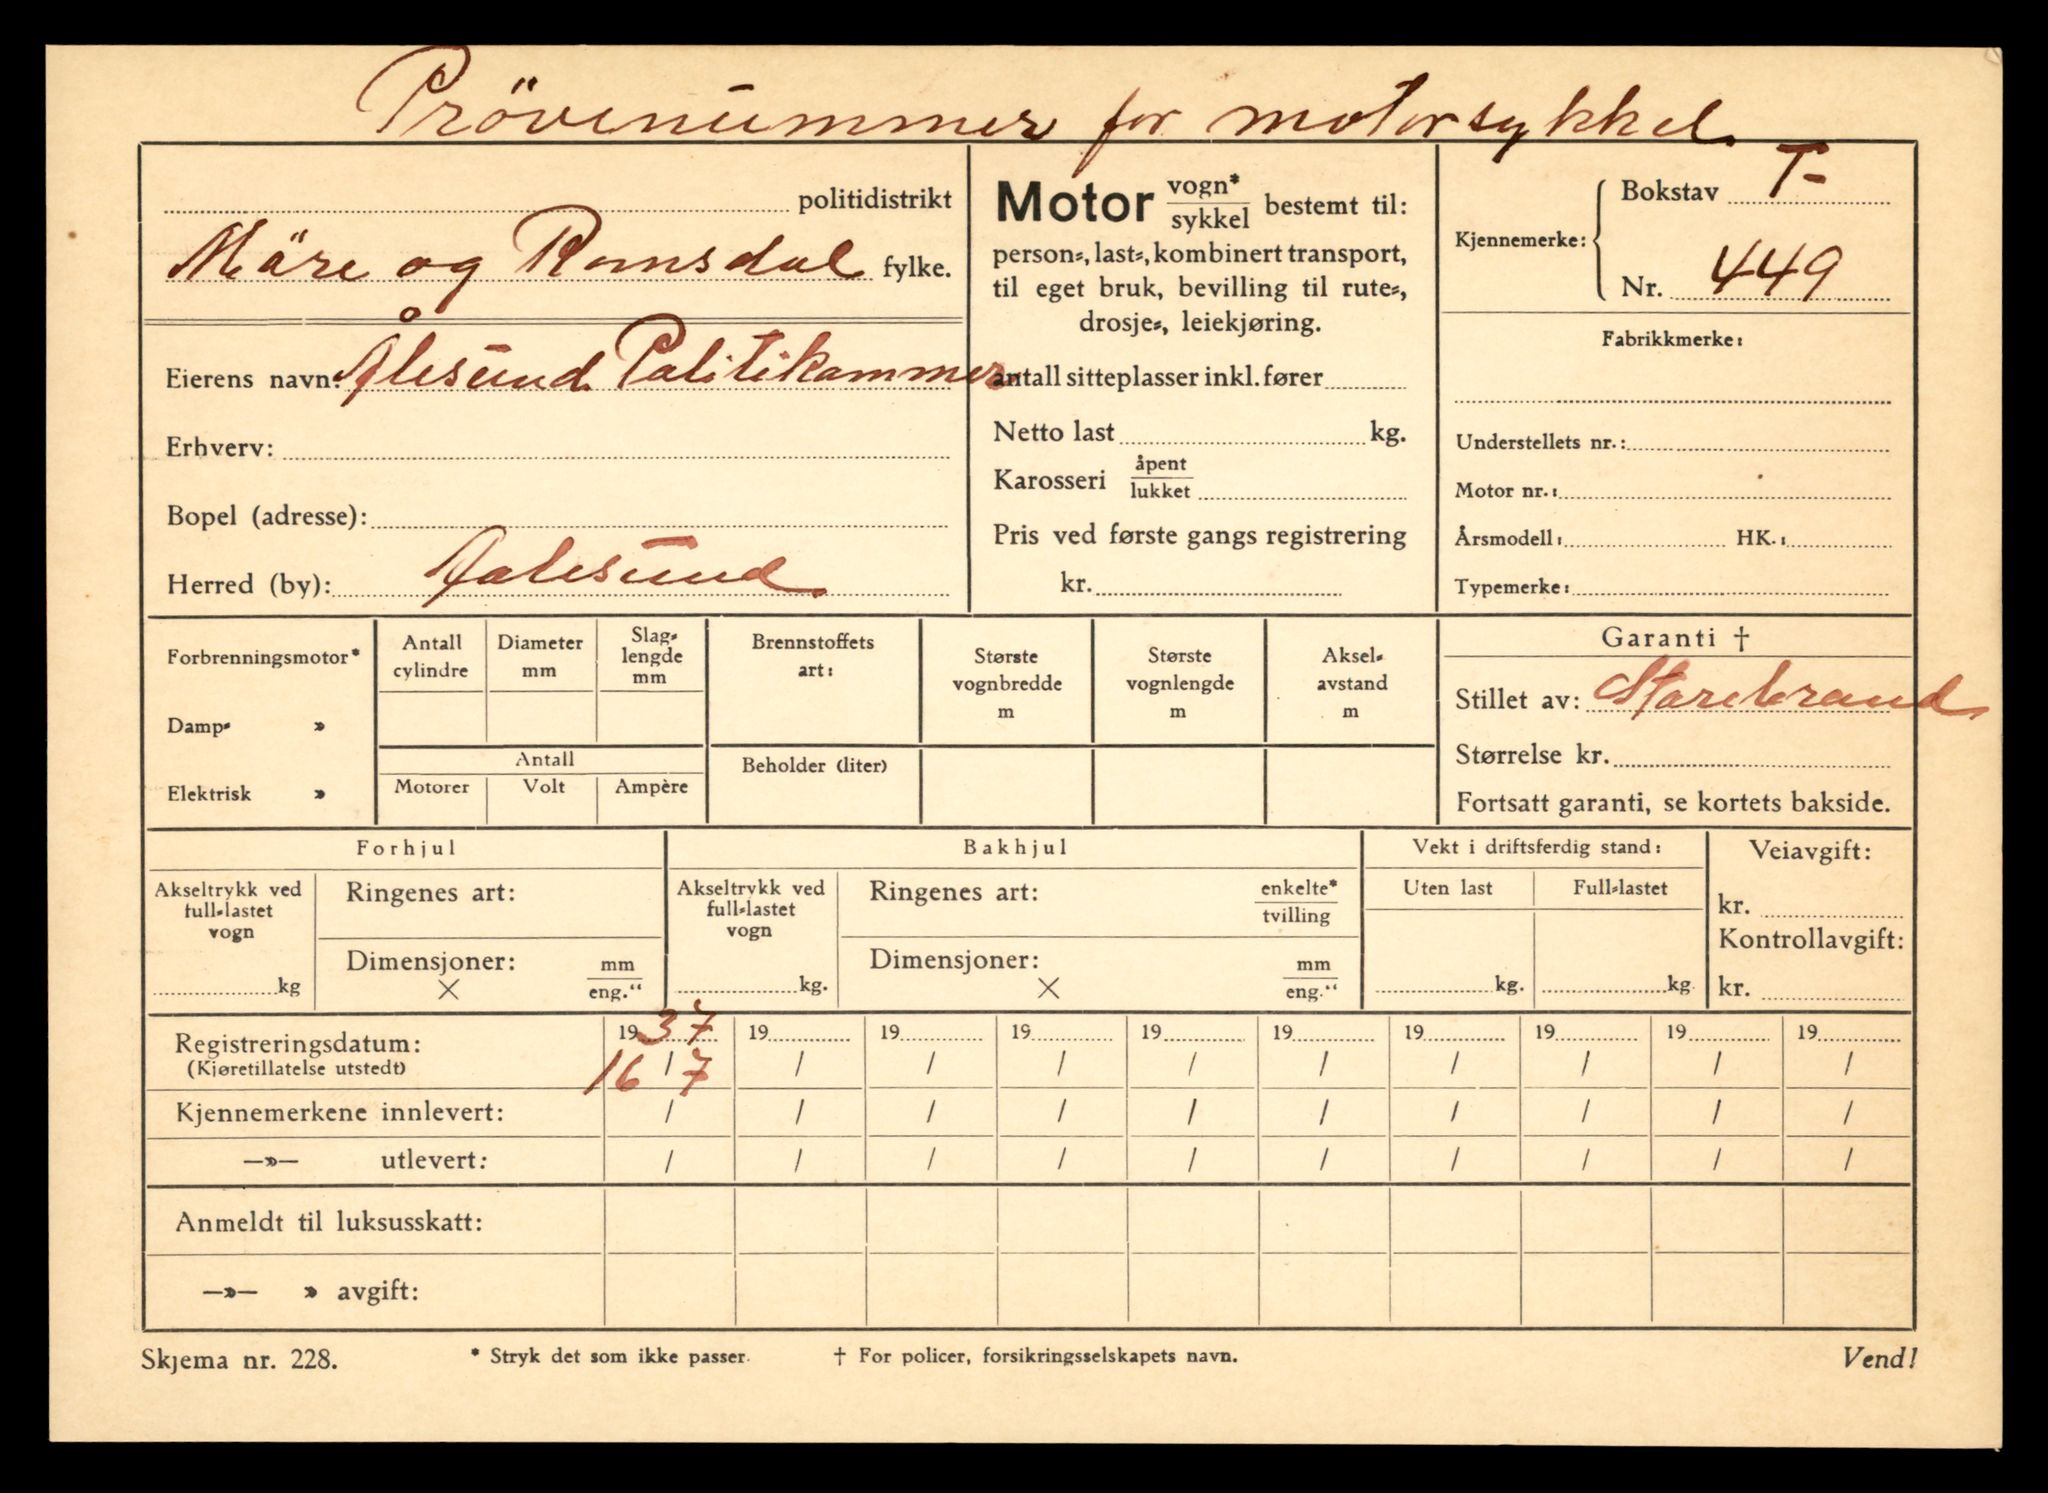 Prövenummer for motorsykkel
politidistrikt
Märe og Romsdal fylke.
Eierens navn: Ålesund Politikammer
Erhverv:
Bopel (adresse):
Herred (by): Aalesund
Motor vogn* / sykkel bestemt til:
person-, last-, kombinert transport,
til eget bruk, bevilling til rute-,
drosje-, leiekjøring.
antall sitteplasser inkl. fører
Netto last kg.
Karosseri åpent / lukket
Pris ved første gangs registrering
kr.
Kjennemerke: Bokstav T-
Nr. 449
Fabrikkmerke:
Understellets nr.:
Motor nr.:
Årsmodell: HK.:
Typemerke:
Forbrenningsmotor*
Damp- »
Elektrisk »
Antall cylindre
Diameter mm
Slag-lengde mm
Antall
Motorer Volt Ampère
Brennstoffets art:
Beholder (liter)
Største vognbredde m
Største vognlengde m
Aksel-avstand m
Garanti †
Stillet av: Storebrand
Størrelse kr.
Fortsatt garanti, se kortets bakside.
Forhjul
Akseltrykk ved full-lastet vogn
kg
Ringenes art:
Dimensjoner: × mm / eng."
Bakhjul
Akseltrykk ved full-lastet vogn
kg.
Ringenes art: enkelte* / tvilling
Dimensjoner: × mm / eng."
Vekt i driftsferdig stand:
Uten last Full-lastet
kg. kg.
Veiavgift:
kr.
Kontrollavgift:
kr.
Registreringsdatum: 1937 19 19 19 19 19 19 19 19 19
(Kjøretillatelse utstedt) 16/7 / / / / / / / / /
Kjennemerkene innlevert: / / / / / / / / / /
—»— utlevert: / / / / / / / / / /
Anmeldt til luksusskatt:
—»— » avgift:
Skjema nr. 228. * Stryk det som ikke passer. † For policer, forsikringsselskapets navn. Vend!